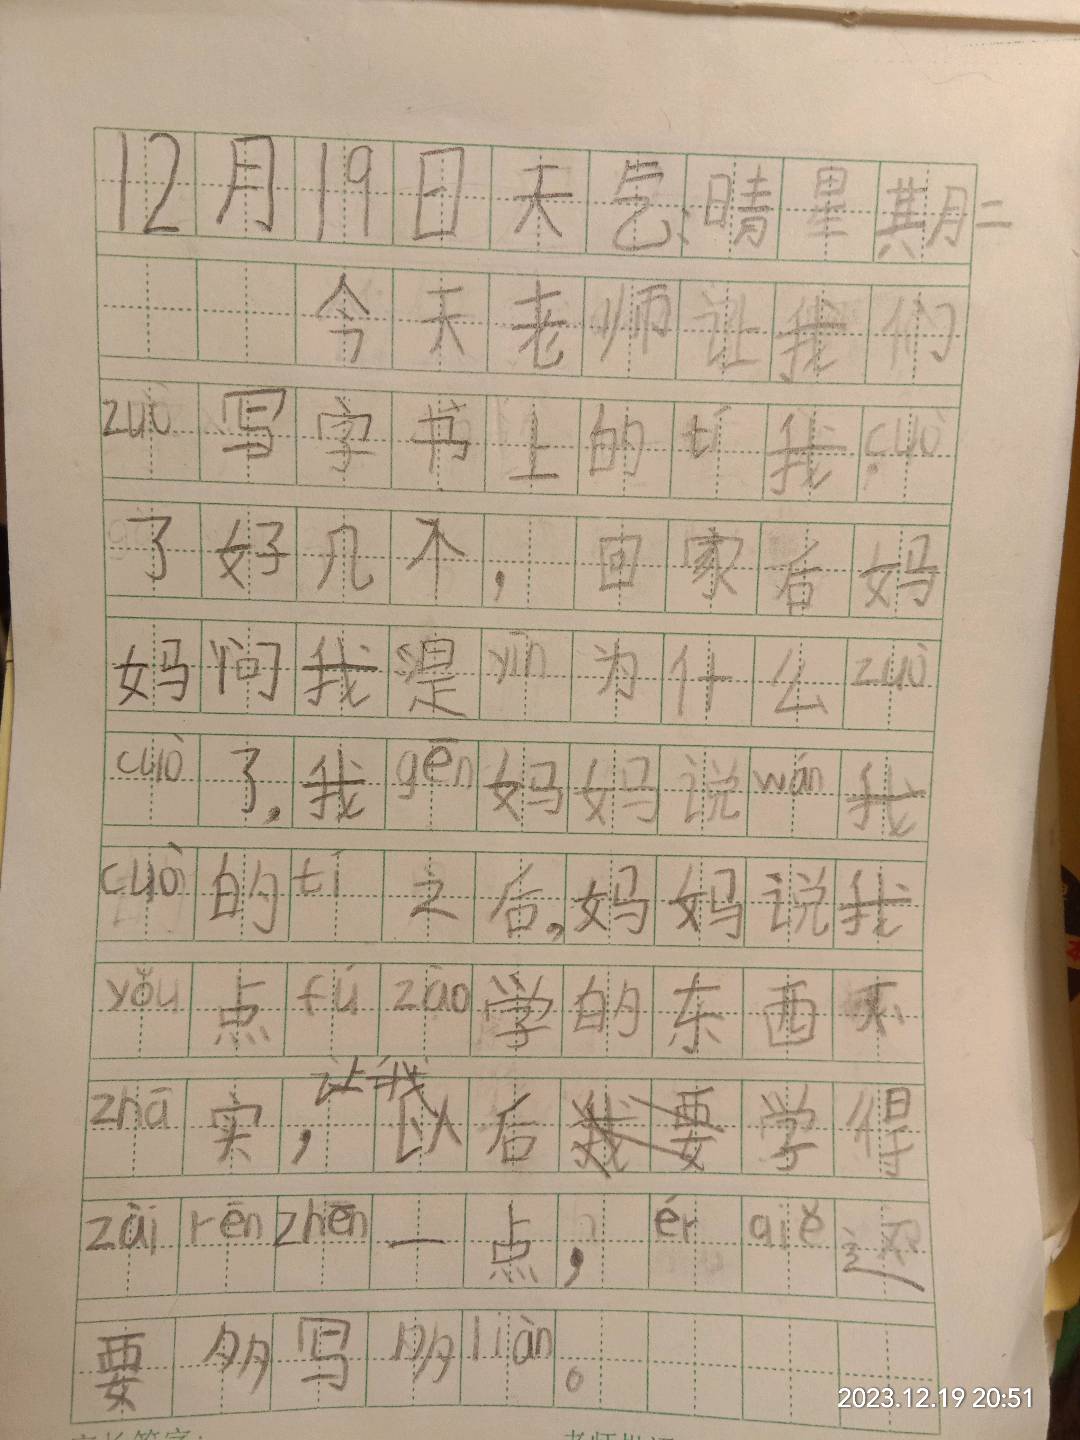 12月19日天气、晴星期二
今天老师让我们
zuò写字书上的tí我cuò
了好几个，回家后妈
妈问我是yīn为什么zuò
cuò了,我gēn妈妈说wán我
cuò的tí之后,妈妈说我
yǒu点fú zào学的东西不
让我
zhā实，以后我要学得
zài rēn zhēn一点，ér qiě还
要多写多liàn。
2023.12.19 20:51